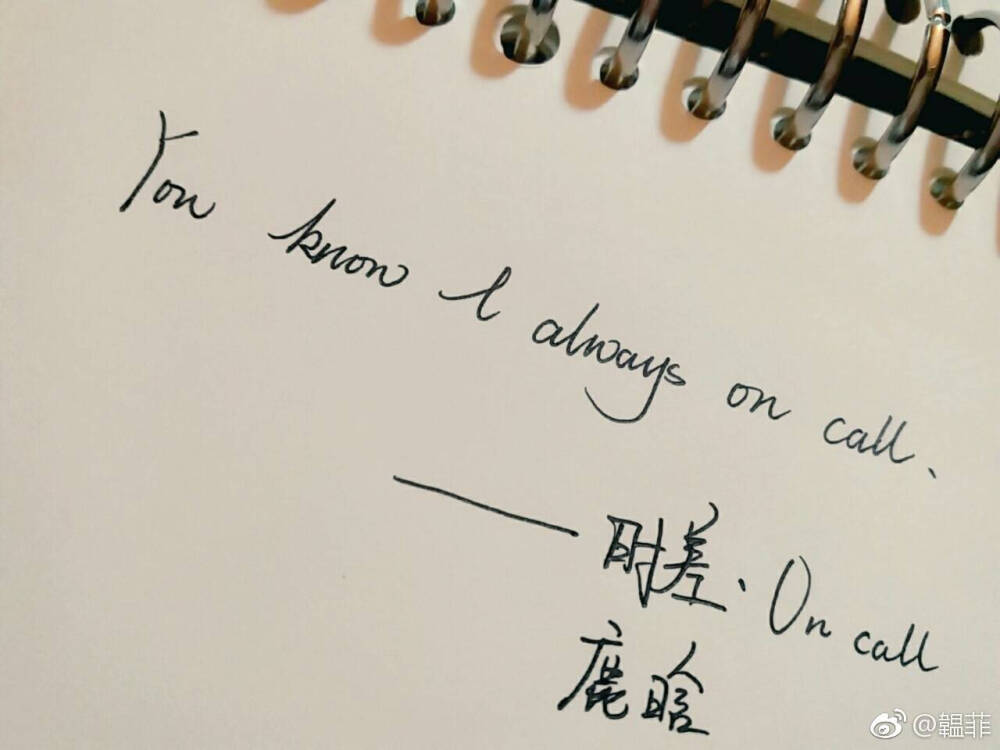 You know I always on call.
——时差、On call
鹿晗
@韫菲